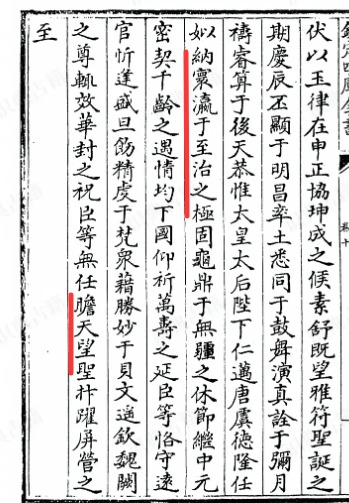 伏以玉律在申正協坤成之候素舒既望雅符聖誕之
期慶辰丕顯于明昌率土悉同于鼓舞演真詮于彌月
禱睿算于後天恭惟太皇太后陛下仁邁唐虞德隆任
姒納寰瀛于至治之極固龜鼎于無疆之休節繼中元
密契千齡之遇情均下國仰祈萬壽之延臣等恪守遠
官忻逢盛旦飭精虔于梵衆藉勝妙于貝文遥欽魏闕
之尊輒效華封之祝臣等無任瞻天望聖抃躍屏營之
至